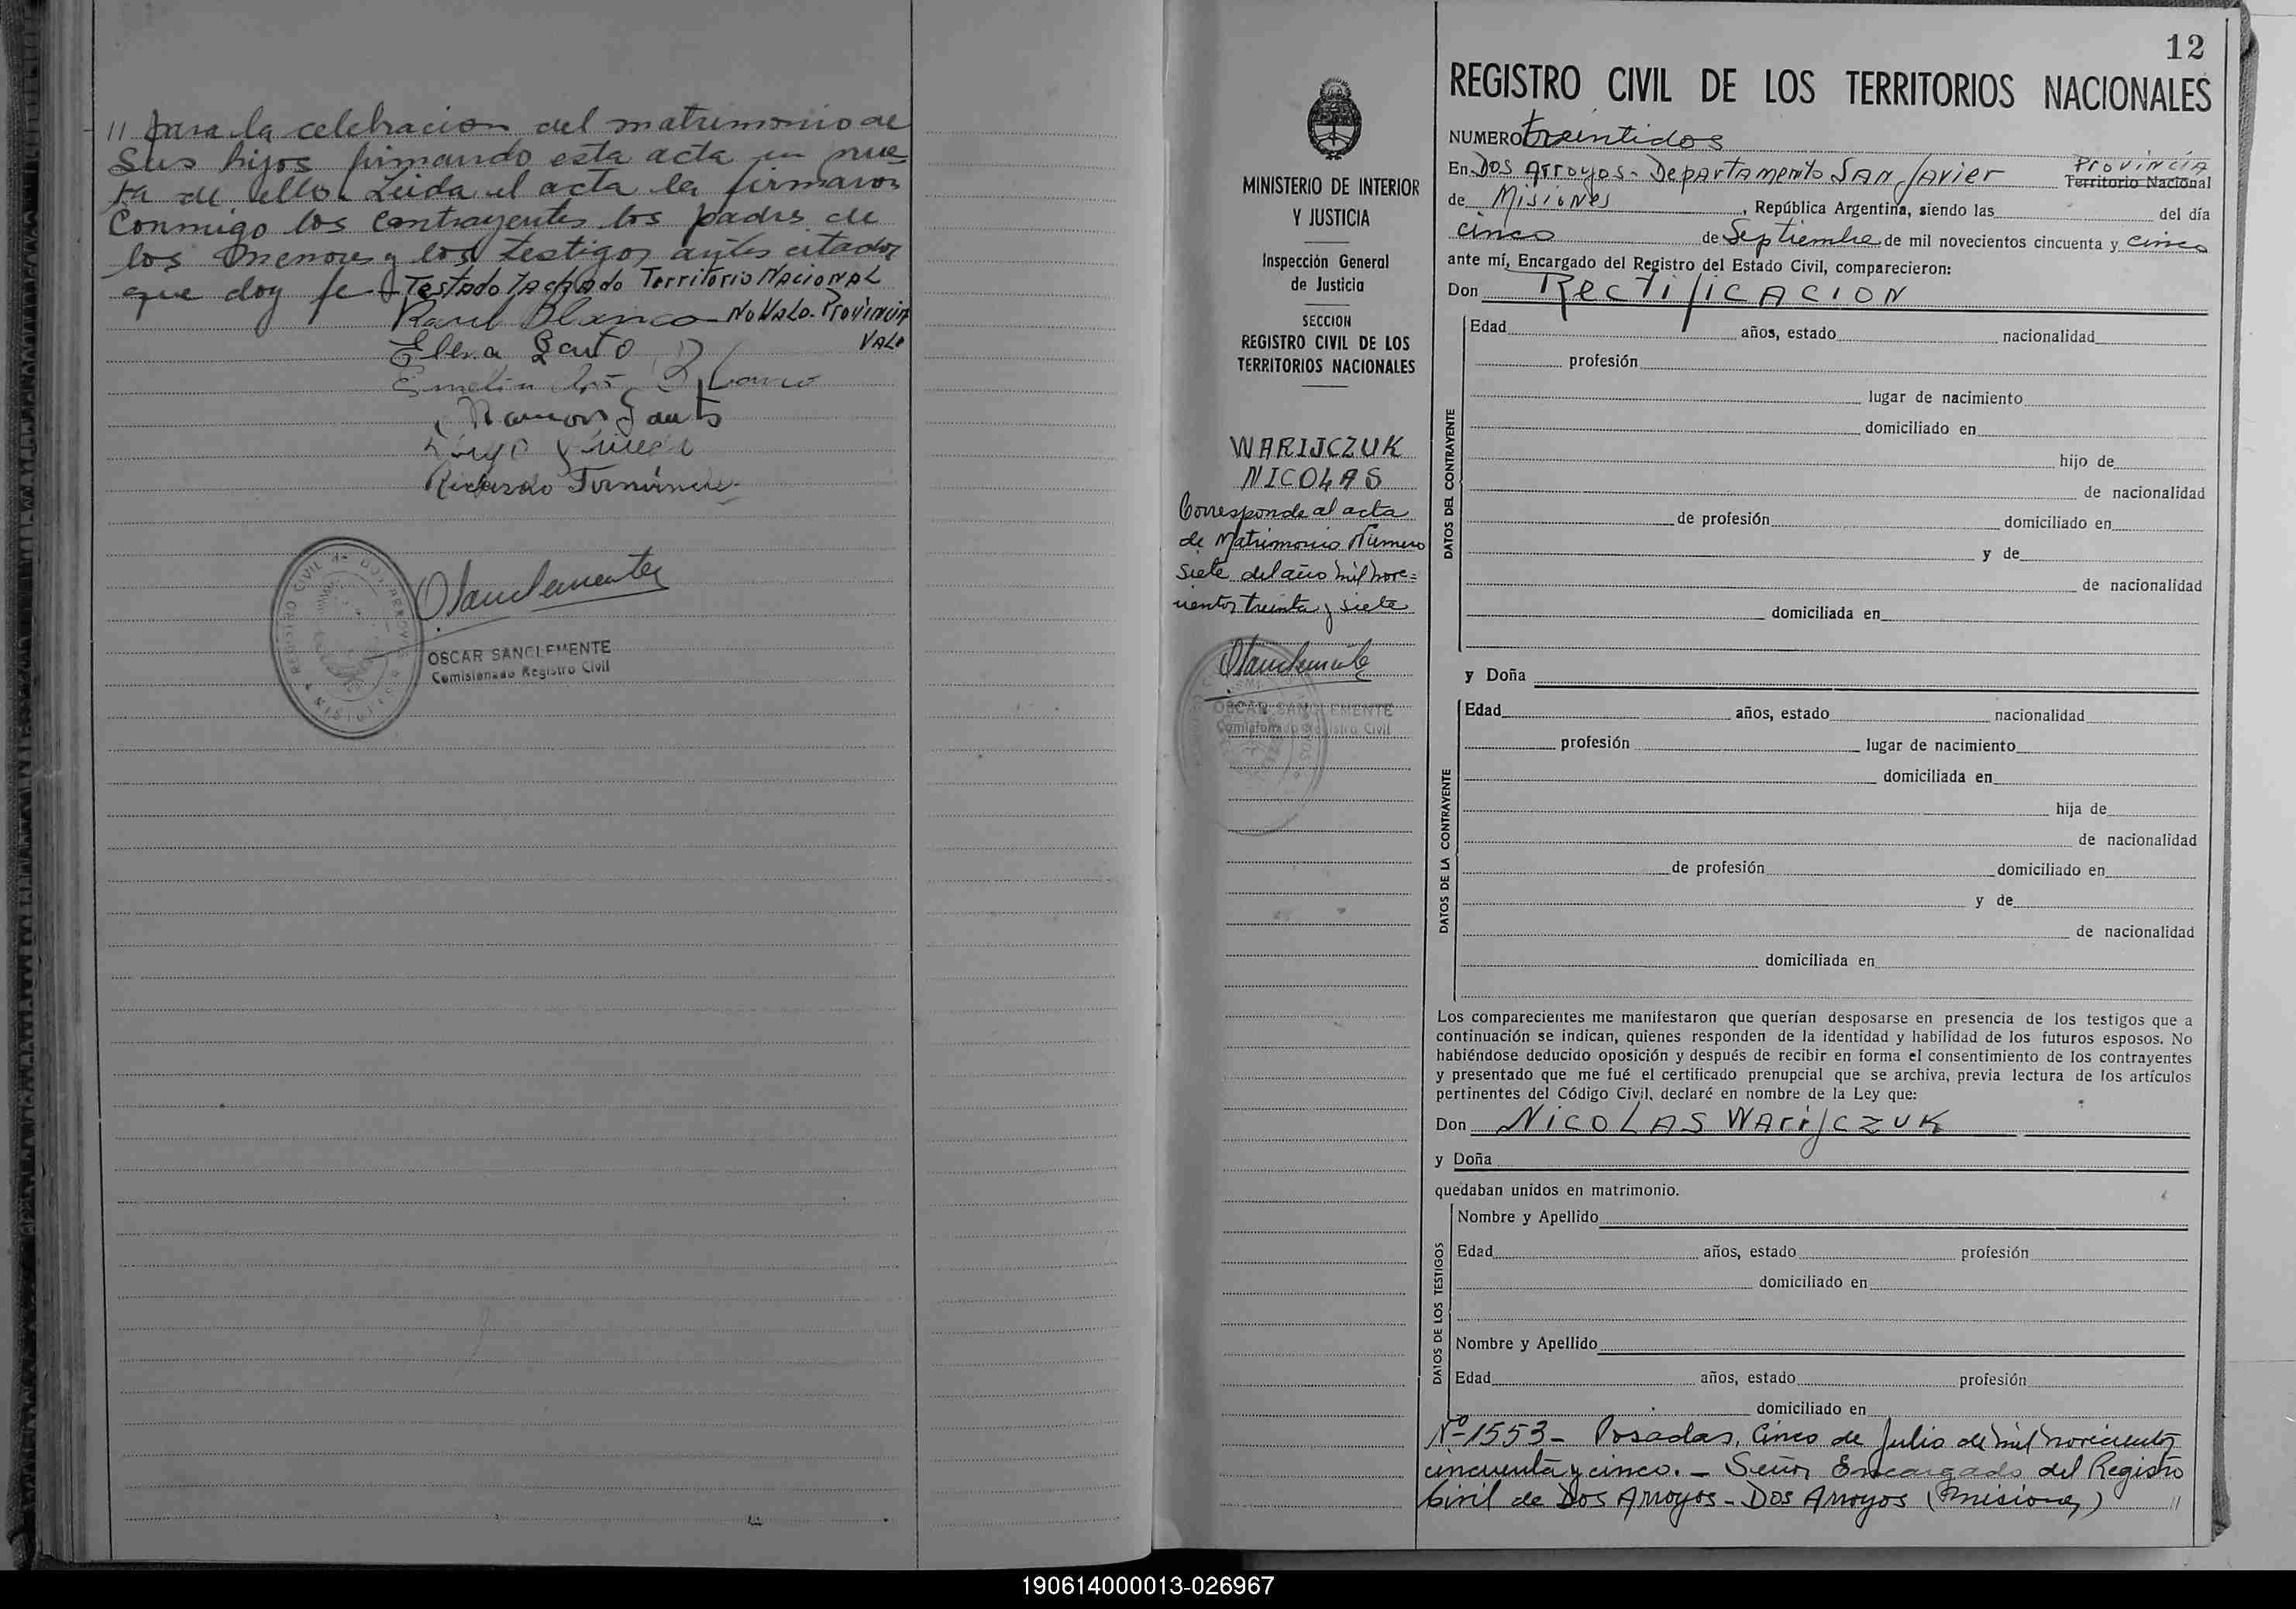 // para la celebracion del matrimonio de
sus hijos firmando esta acta en prue
ba de ello. Leida el acta la firmaron
conmigo los contrayentes los padres de
los menores y los testigos antes citados
que doy fe - Testado Tachado Territorio Nacional
Raul Blanco - No Vale - Provincia
Vale
Elena Santo
Blanco
Ramon Santo
Ricardo Fernández
REGISTRO CIVIL de DOS ARROYOS
MISIONES
OSCAR SANCLEMENTE
Comisionado Registro Civil
12
MINISTERIO DE INTERIOR
Y JUSTICIA
Inspección General
de Justicia
SECCION
REGISTRO CIVIL DE LOS
TERRITORIOS NACIONALES
WARIJCZUK
NICOLAS
Corresponde al acta
de Matrimonio Numero
siete del año mil nove=
cientos treinta y siete
OSCAR SANCLEMENTE
Comisionado Registro Civil
REGISTRO CIVIL DE LOS TERRITORIOS NACIONALES
NUMERO treintidos
Provincia
En Dos Arroyos - Departamento San Javier Territorio Nacional
de Misiones, República Argentina, siendo las del día
cinco de Septiembre de mil novecientos cincuenta y cinco
ante mí, Encargado del Registro del Estado Civil, comparecieron:
Don Rectificacion
DATOS DEL CONTRAYENTE
Edad años, estado nacionalidad
profesión
lugar de nacimiento
domiciliado en
hijo de
de nacionalidad
de profesión domiciliado en
y de
de nacionalidad
domiciliada en
y Doña
DATOS DE LA CONTRAYENTE
Edad años, estado nacionalidad
profesión lugar de nacimiento
domiciliada en
hija de
de nacionalidad
de profesión domiciliado en
y de
de nacionalidad
domiciliada en
Los comparecientes me manifestaron que querían desposarse en presencia de los testigos que a
continuación se indican, quienes responden de la identidad y habilidad de los futuros esposos. No
habiéndose deducido oposición y después de recibir en forma el consentimiento de los contrayentes
y presentado que me fué el certificado prenupcial que se archiva, previa lectura de los artículos
pertinentes del Código Civil, declaré en nombre de la Ley que:
Don Nicolas Warijczuk
y Doña
quedaban unidos en matrimonio.
DATOS DE LOS TESTIGOS
Nombre y Apellido
Edad años, estado profesión
domiciliado en
Nombre y Apellido
Edad años, estado profesión
domiciliado en
Nº 1553 - Posadas, Cinco de Julio de mil novecientos
cincuenta y cinco. - Señor Encargado del Registro
Civil de Dos Arroyos - Dos Arroyos (Misiones) //
190614000013-026967